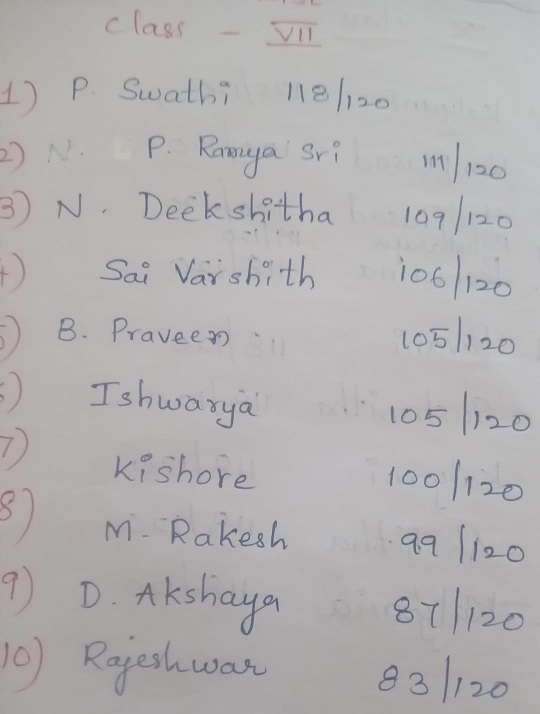 Class - VII
1) P. Swathi 118/120
2) N. P. Ramya Sri 111/120
3) N. Deekshitha 109/120
4) Sai Varshith 106/120
5) B. Praveen 105/120
6) Ishwarya 105/120
7) Kishore 100/120
8) M. Rakesh 99/120
9) D. Akshaya 87/120
10) Rajeshwar 83/120